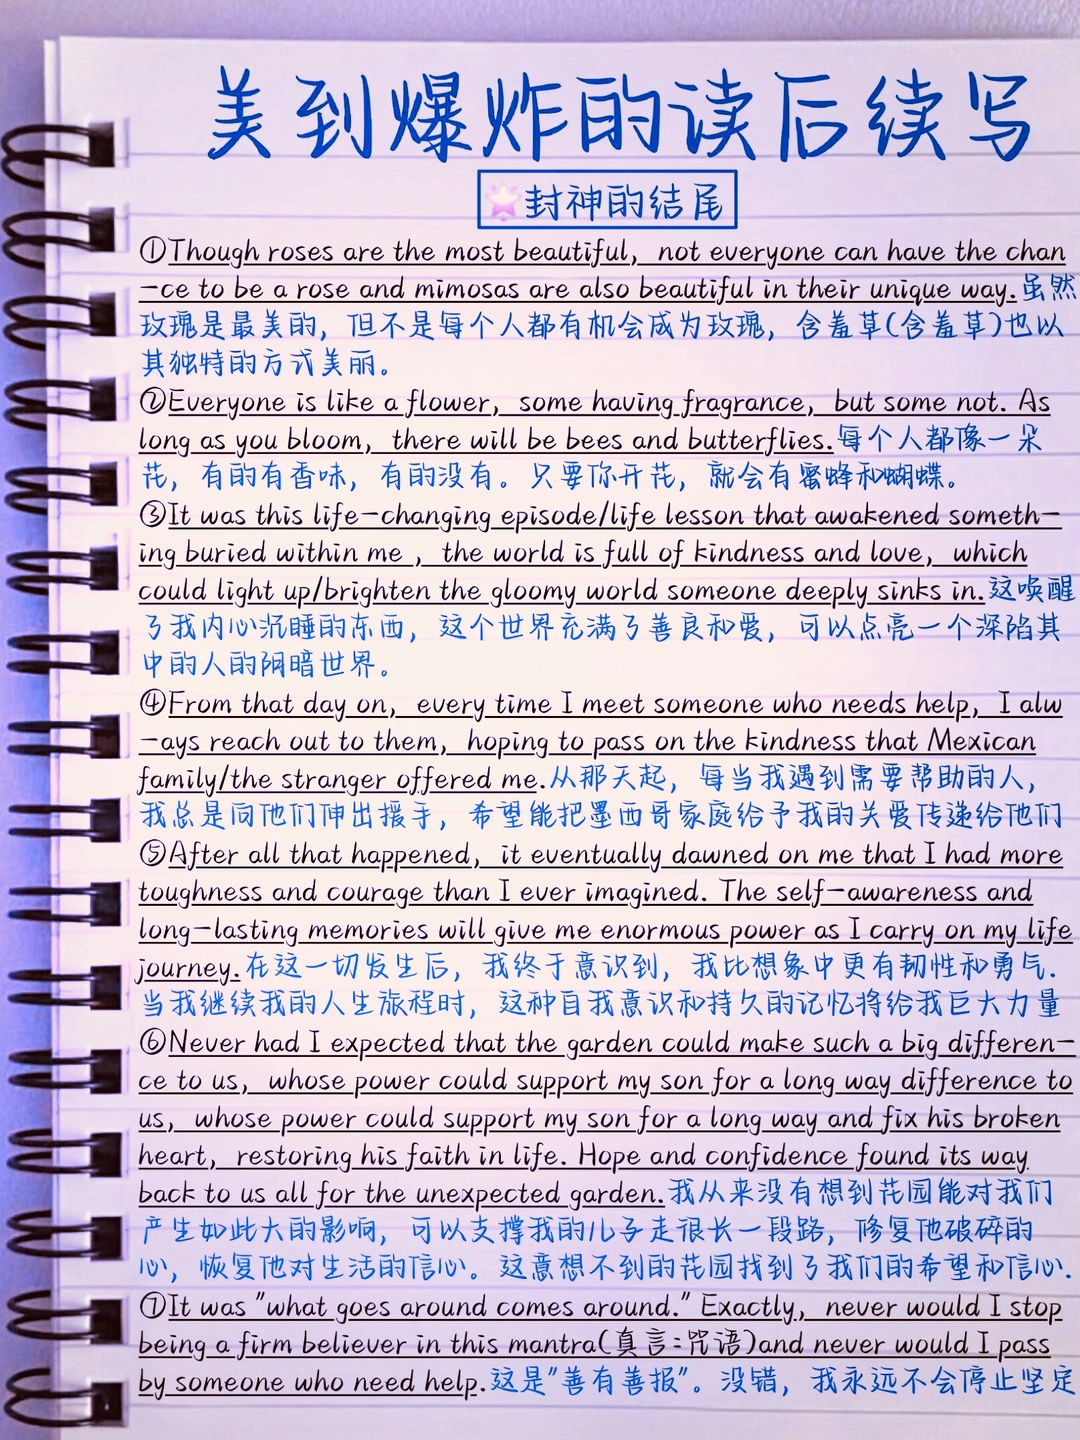 美到爆炸的读后续写
封神的结尾
①Though roses are the most beautiful, not everyone can have the chan
-ce to be a rose and mimosas are also beautiful in their unique way.虽然
玫瑰是最美的，但不是每个人都有机会成为玫瑰，含羞草(含羞草)也以
其独特的方式美丽。
②Everyone is like a flower, some having fragrance, but some not. As
long as you bloom, there will be bees and butterflies.每个人都像一朵
花，有的有香味，有的没有。只要你开花，就会有蜜蜂和蝴蝶。
③It was this life-changing episode/life lesson that awakened someth-
ing buried within me , the world is full of kindness and love, which
could light up/brighten the gloomy world someone deeply sinks in.这唤醒
了我内心沉睡的东西，这个世界充满了善良和爱，可以点亮一个深陷其
中的人的阴暗世界。
④From that day on, every time I meet someone who needs help, I alw
-ays reach out to them, hoping to pass on the kindness that Mexican
family/the stranger offered me.从那天起，每当我遇到需要帮助的人，
我总是向他们伸出援手，希望能把墨西哥家庭给予我的关爱传递给他们
⑤After all that happened, it eventually dawned on me that I had more
toughness and courage than I ever imagined. The self-awareness and
long-lasting memories will give me enormous power as I carry on my life
journey.在这一切发生后，我终于意识到，我比想象中更有韧性和勇气.
当我继续我的人生旅程时，这种自我意识和持久的记忆将给我巨大力量
⑥Never had I expected that the garden could make such a big differen-
ce to us, whose power could support my son for a long way difference to
us, whose power could support my son for a long way and fix his broken
heart, restoring his faith in life. Hope and confidence found its way
back to us all for the unexpected garden.我从来没有想到花园能对我们
产生如此大的影响，可以支撑我的儿子走很长一段路，修复他破碎的
心，恢复他对生活的信心。这意想不到的花园找到了我们的希望和信心.
⑦It was "what goes around comes around." Exactly, never would I stop
being a firm believer in this mantra(真言;咒语)and never would I pass
by someone who need help.这是"善有善报"。没错，我永远不会停止坚定